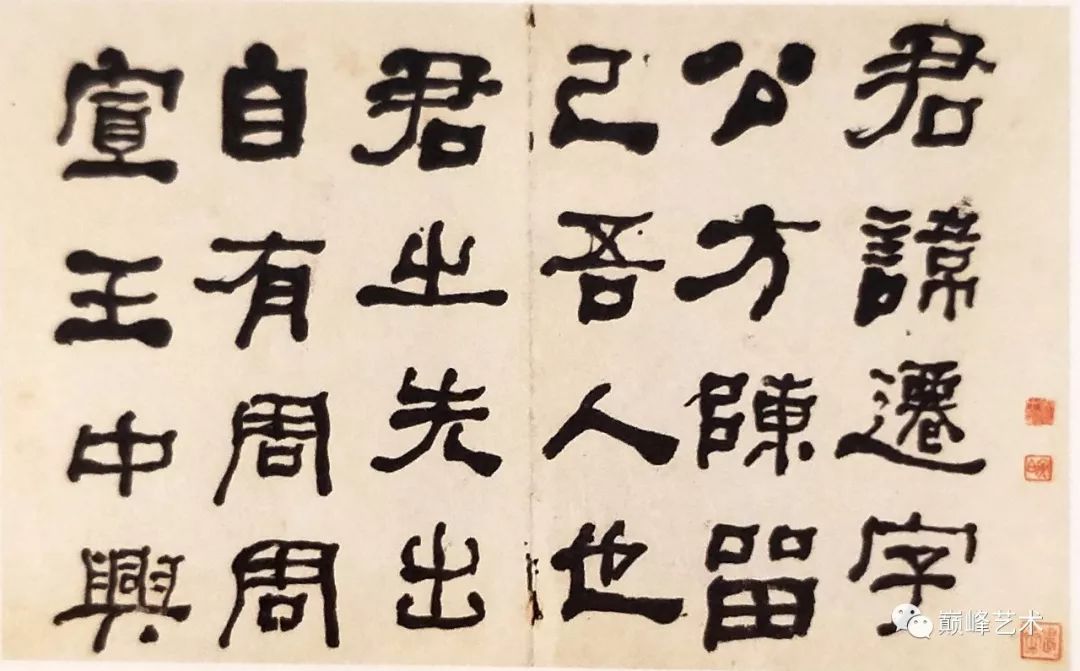 君諱遷字
公方陳留
己吾人也
君之先出
自有周周
宣王中興
巅峰艺术